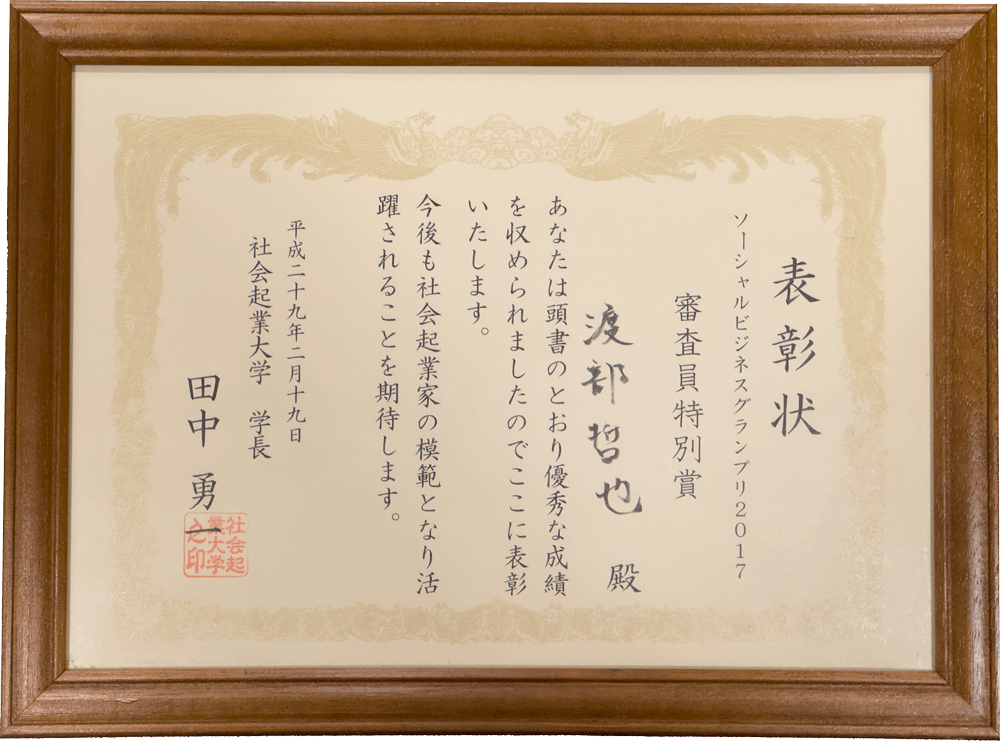 表彰状
ソーシャルビジネスグランプリ2017
審査員特別賞
渡部哲也 殿
あなたは頭書のとおり優秀な成績
を収められましたのでここに表彰
いたします。
今後も社会起業家の模範となり活
躍されることを期待します。
平成二十九年二月十九日
社会起業大学 学長
田中 勇一
社会起
業大学
之印